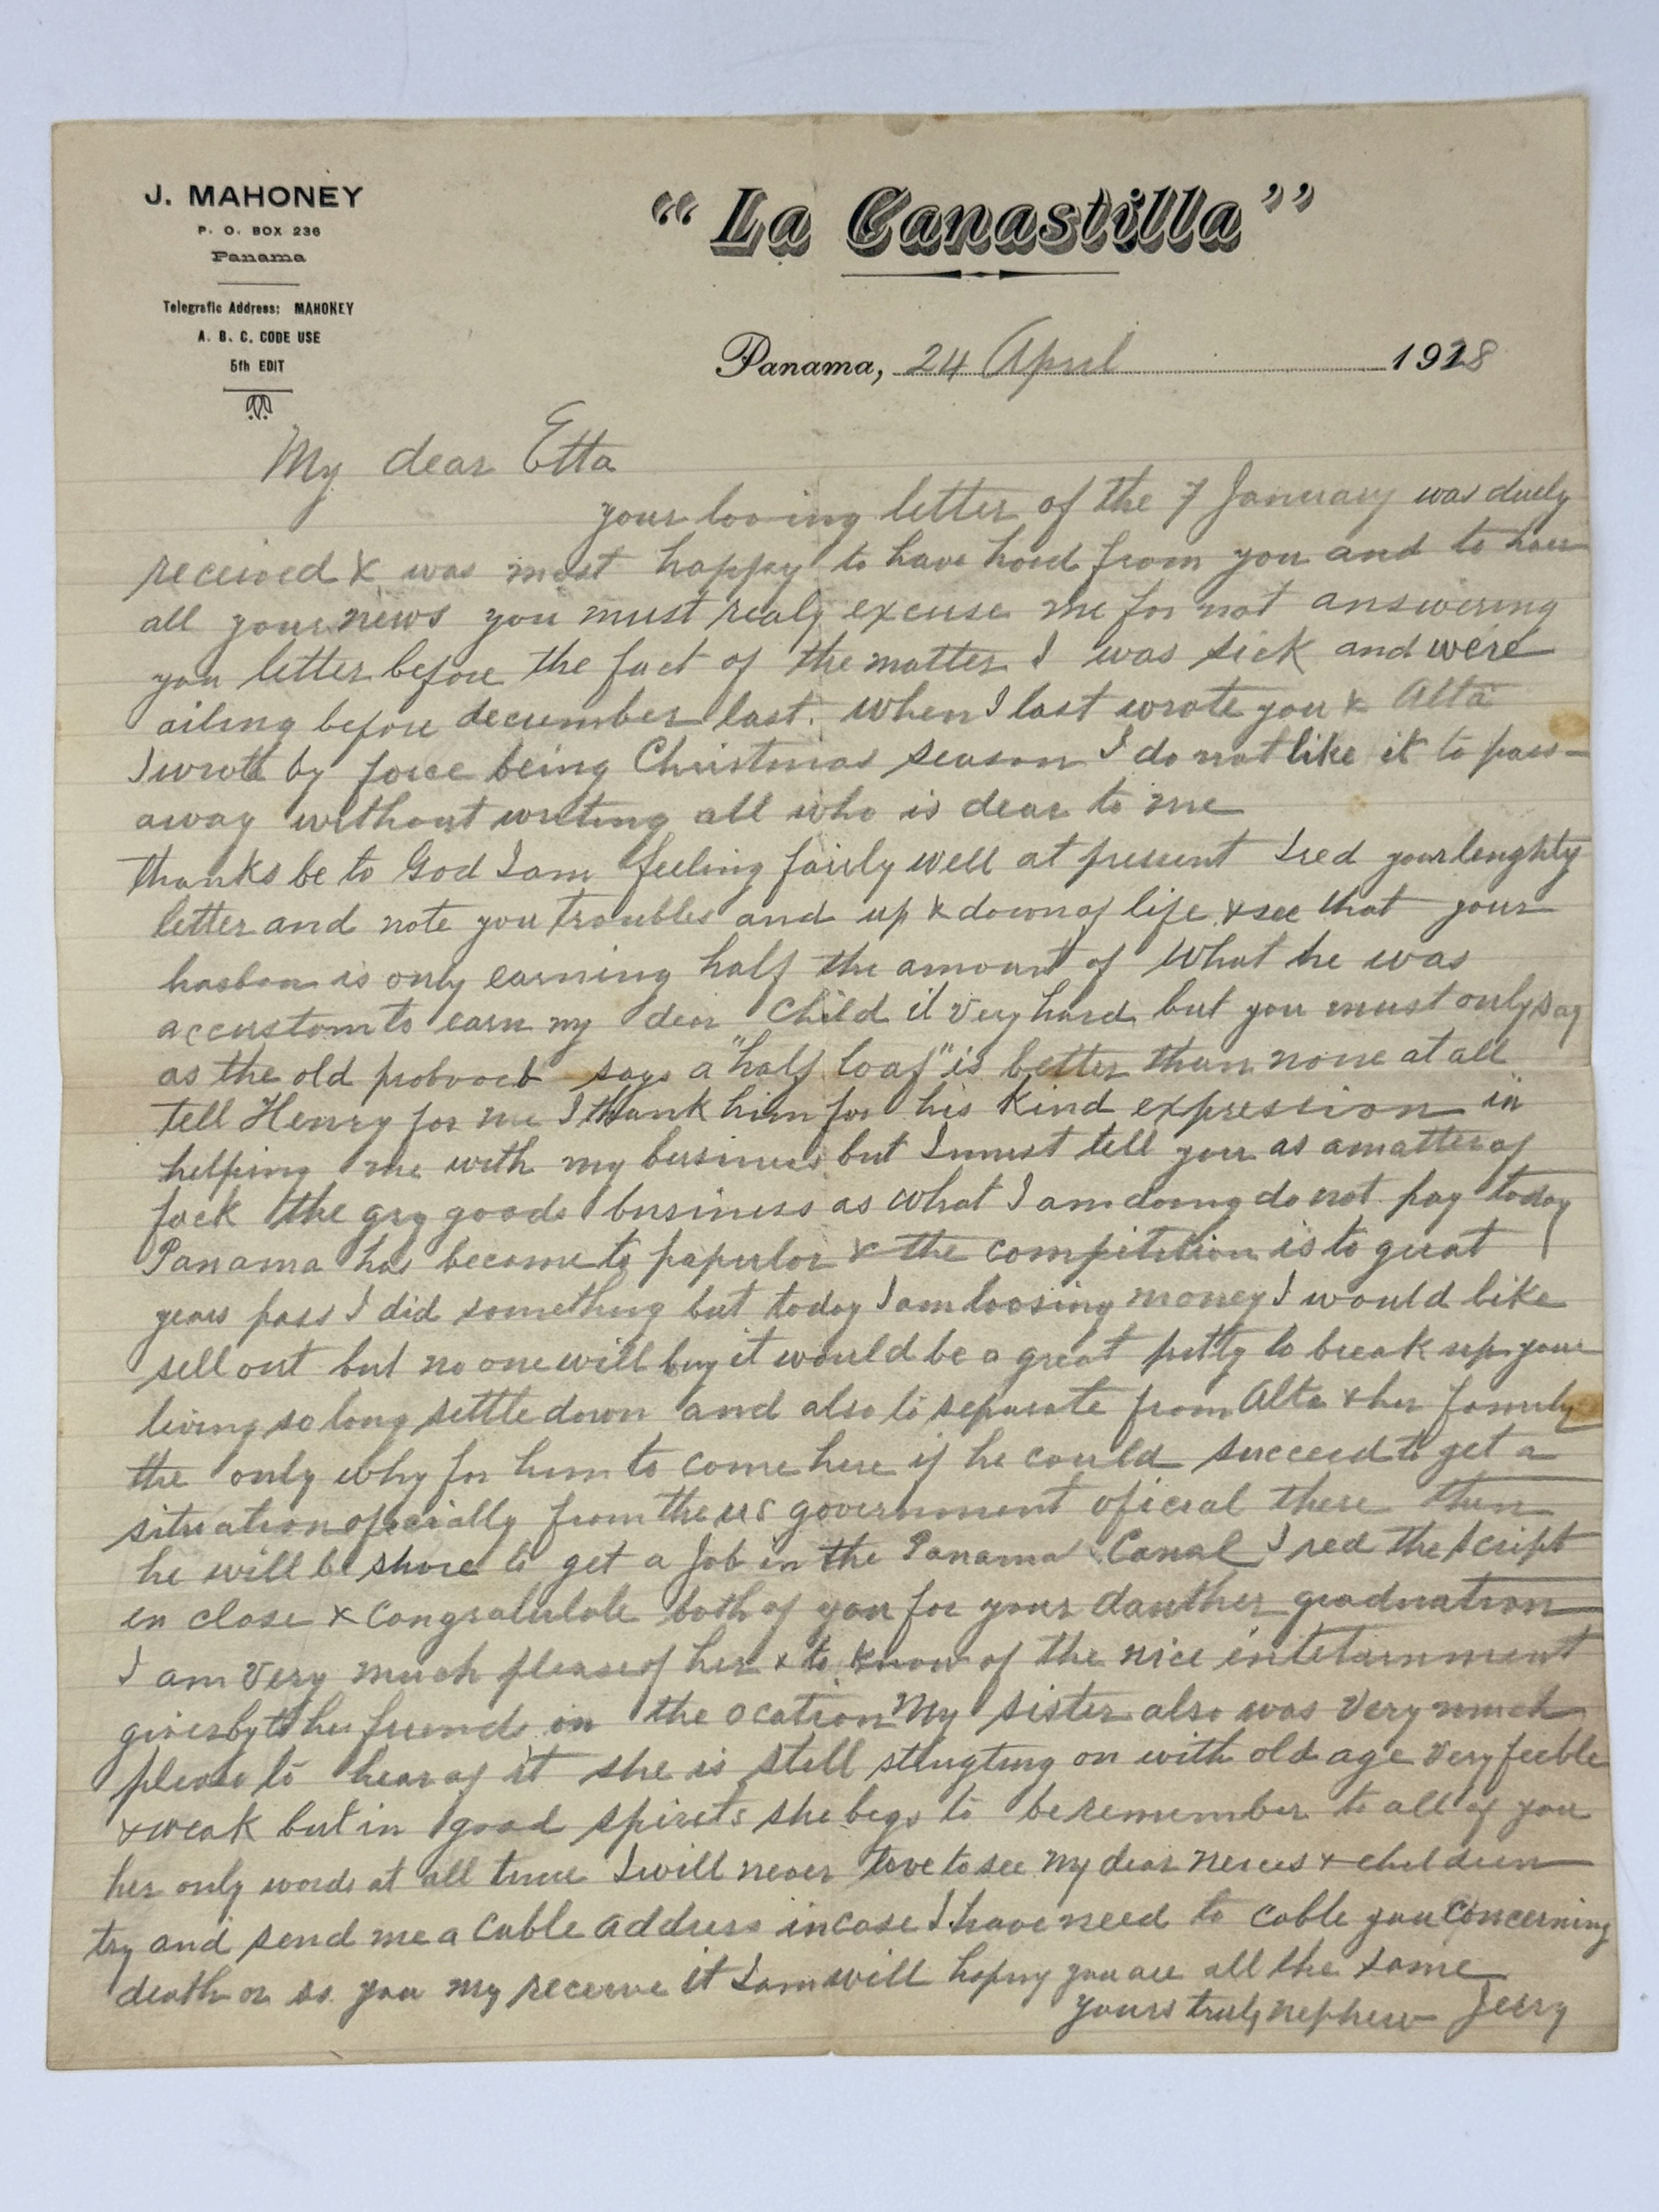 J. MAHONEY
P. O. BOX 236
Panama
Telegrafic Address: MAHONEY
A. B. C. CODE USE
5th EDIT
“ La Canastilla ”
Panama, 24 April 1928
My dear Etta
your loving letter of the 7 January was duely
received & was most happy to have herd from you and to hear
all your news you must realy excuse me for not answering
you letter before the fact of the matter I was sick and were
ailing before december last. when I last wrote you & Alta
I wrote by force being Christmas season I do not like it to pass
away without writing all who is dear to me
thanks be to God I am feeling fairly well at present I red your lenghty
letter and note you troubles and up & down of life & see that your
hasban is only earning half the amount of what he was
accustom to earn my dear Child it very hard but you must only say
as the old says a "half loaf" is better than none at all
tell Henry for me I thank him for his kind expression in
helping me with my business but I must tell you as a matter of
fack the gry goods business as what I am doing do not pay today
Panama has become to papular & the compitition is to great
years pass I did something but today I am loosing money I would like
sell out but no one will buy it would be a great pitty to break up your
living so long settle down and also to separate from Alta & her family
the only why for him to come here if he could succeed to get a
situation from the us government oficial there then
he will be shore to get a job in the Panama Canal I red the script
in close & congratulate both of you for your dauther graduation
I am very much please of her & to know of the nice
given by the friends on the ocation My sister also was very much
please to hear of it she is still on with old age very feeble
& weak but in good spirits she begs to be remember to all of you
her only words at all time I will never love to see my dear neices & children
try and send me a cable address in case I have need to cable you concerning
death or so you my receive it I am well hoping you are all the same
yours truly nephew Jerry